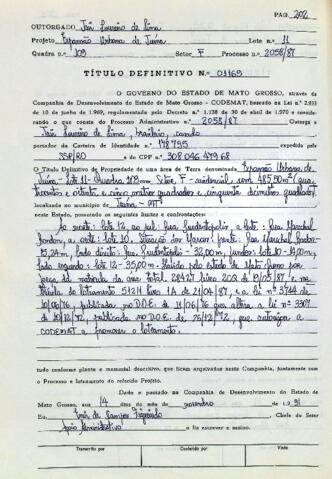 PAG. 202
OUTORGADO Loureiro de Lima
Projeto Expansão Urbana de Juina Lote n.º 11
Quadra n.º 109 Setor F Processo n.º 2058/87
TÍTULO DEFINITIVO N.º 01165
O GOVERNO DO ESTADO DE MATO GROSSO, através da
Companhia de Desenvolvimento do Estado de Mato Grosso - CODEMAT, baseado na Lei n.º
de 10 de junho de 1969, regulamentada pelo Decreto n.º 1.138 de 30 de abril de 1970 e considerando
o que consta do Processo Administrativo n.º 2058/87 Outorga a
Loureiro de Lima, brasileiro,
portador da Carteira de Identidade n.º 178795 expedida pela
SSP/RO e do CPF n.º 308 046 479 68
O Título Definitivo de Propriedade de uma área de Terra denominada Expansão Urbana de
Juina - Lote 11 - Quadra 109 - Setor F - com 485,50 m² (quatrocentos
e oitenta e cinco metros quadrados e cinquenta decímetros quadrados)
localizada no município de Juina - MT
neste Estado, possuindo os seguintes limites e confrontações:
ao norte: lote 12, ao sul: Rua a leste: Rua Marechal
Rondon, a oeste: lote 10. frente: Rua Marechal Rondon -
15,24m, lado direito: Rua 32,00m, fundos: lote 10 - 14,00m,
lado esquerdo: lote 12 - 35,00m. Havido pelo Estado de Mato Grosso
matrícula da área total 28427 livro 2CQ de 19/05/87 e
matrícula de loteamento 5124 livro 1A de 21/04/87, e a lei nº 3744 de
10/06/76, publicada no D.O.E. de 11/06/76 que altera a lei nº 3307
de 10/12/72, publicada no D.O.E. de 26/12/72, que autoriza a
CODEMAT a promover o loteamento.
tudo conforme planta e memorial descritivo, que ficam arquivados nesta Companhia, juntamente com
o Processo e loteamento do referido Projeto.
Dado e passado na Companhia de Desenvolvimento do Estado de
Mato Grosso, aos 14 dias do mês de novembro de 19 91
Eu, de Campos Figueiredo Chefe do Setor
Apoio Administrativo a fiz escrever e assino.
Transcrito por Conferido por Visto